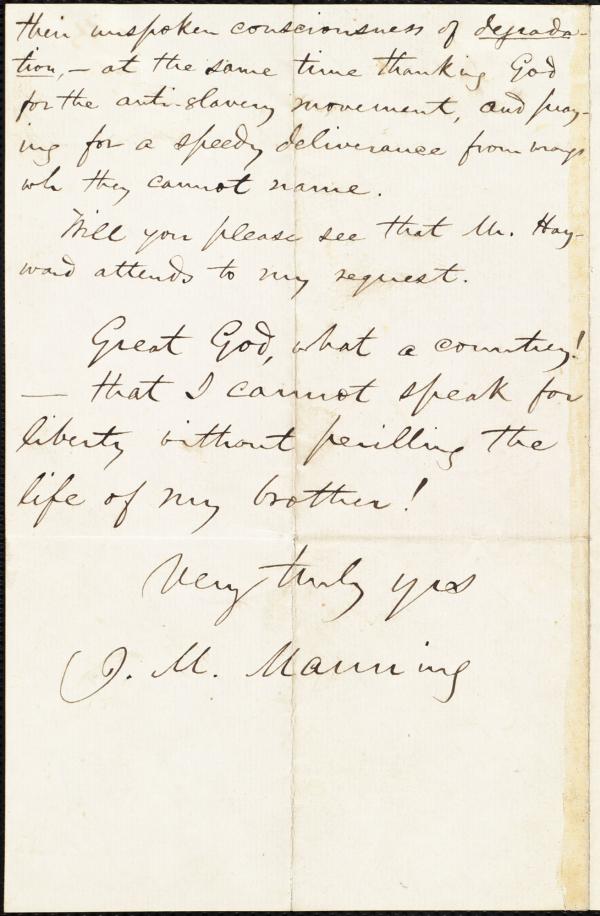 their unspoken consciousness of degrada-
tion, — at the same time thanking God
for the anti-slavery movement, and pray-
ing for a speedy deliverance from wrongs
wh they cannot name.
Will you please see that Mr. Hay-
ward attends to my request.
Great God, what a country!
— that I cannot speak for
liberty without perilling the
life of my brother!
Very truly yrs
J. M. Manning